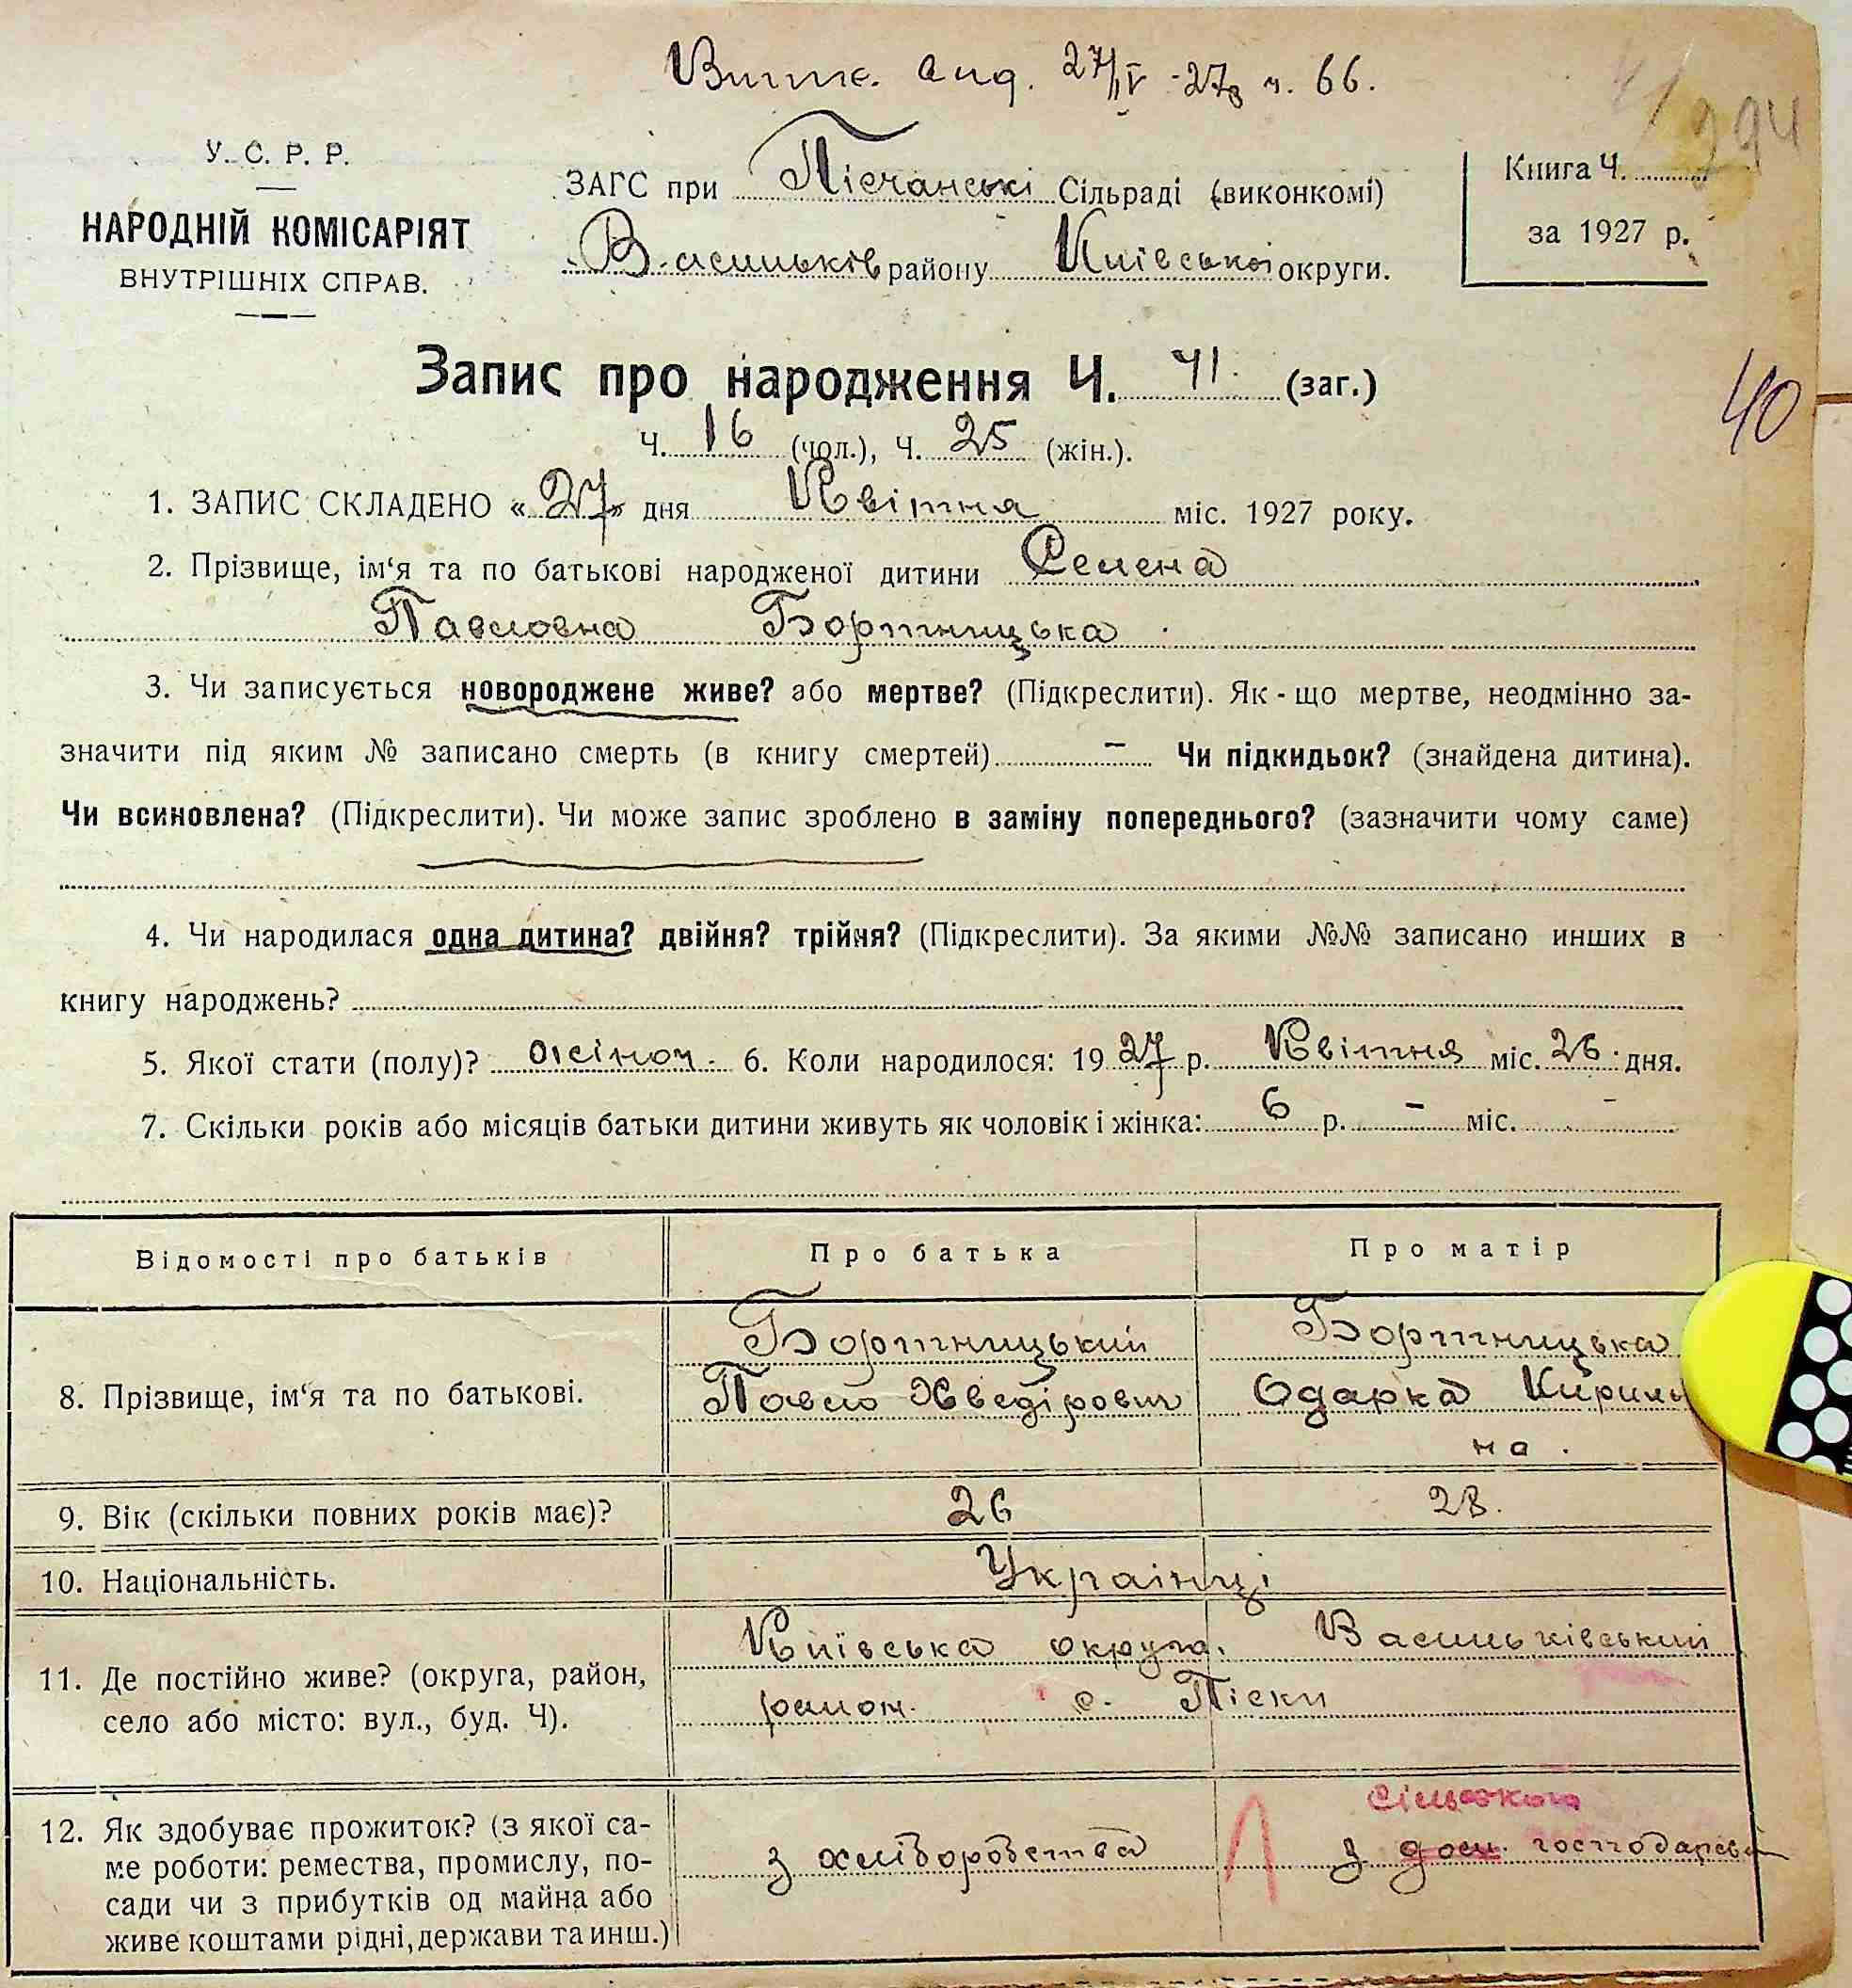 Витяг вид. 27/IV-27р ч. 66.
294
У. С. Р. Р.
НАРОДНІЙ КОМІСАРІЯТ
ВНУТРІШНІХ СПРАВ.
ЗАГС при Пісчанські Сільраді (виконкомі)
Васильків району Київської округи.
Книга Ч.
за 1927 р.
Запис про народження Ч. 41. (заг.)
40
Ч. 16 (чол.), Ч. 25 (жін.).
1. ЗАПИС СКЛАДЕНО «27» дня Квітня міс. 1927 року.
2. Прізвище, ім‘я та по батькові народженої дитини Олена
Павловна Бортницька.
3. Чи записується новороджене живе? або мертве? (Підкреслити). Як - що мертве, неодмінно за-
значити під яким № записано смерть (в книгу смертей) – Чи підкидьок? (знайдена дитина).
Чи всиновлена? (Підкреслити). Чи може запис зроблено в заміну попереднього? (зазначити чому саме)
4. Чи народилася одна дитина? двійня? трійня? (Підкреслити). За якими №№ записано инших в
книгу народжень?
5. Якої стати (полу)? жіноч. 6. Коли народилося: 1927 р. Квітня міс. 26 дня.
7. Скільки років або місяців батьки дитини живуть як чоловік і жінка: 6 р. – міс. –
Відомості про батьків Про батька Про матір
8. Прізвище, ім‘я та по батькові.
Бортницький
Павло Хведірович
Бортницька
Одарка Кирил
на.
9. Вік (скільки повних років має)? 26 28.
10. Національність. Українці
11. Де постійно живе? (округа, район,
село або місто: вул., буд. Ч).
Київська округа. Васильківський
район. с. Піски
12. Як здобуває прожиток? (з якої са-
ме роботи: ремества, промислу, по-
сади чи з прибутків од майна або
живе коштами рідні, держави та инш.)
з хліборобства
сільського
з дом. господарства